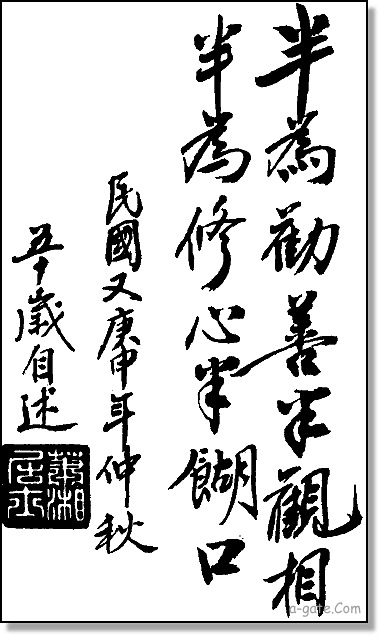 半為勸善半觀相
半為修心半餬口
民國又庚申年仲秋
五十歲自述
蕭湘居士
a-gate.Com